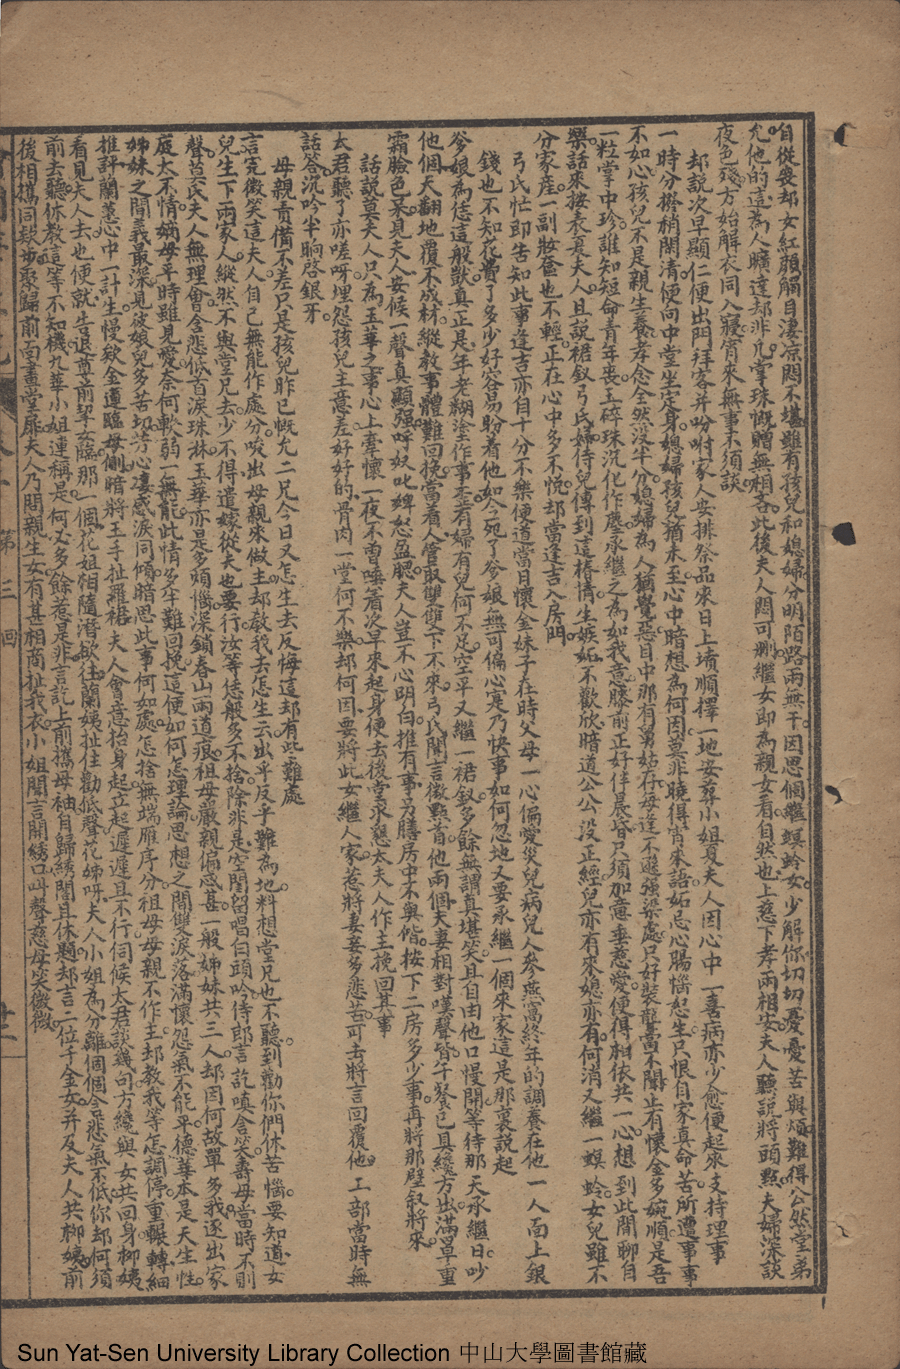 自從娶却女紅顏觸目淒凉悶不堪雖有孩兒和媳婦分明陌路兩無干因思個繼螟蛉女少解你切切憂愛苦與煩難得公然堂弟
允他的這為人曠達却非凡掌珠慨贈無相吝此後夫人悶可刪繼女即為親女看自然也上慈下孝兩相安夫人聽説將頭點夫婦深談
夜色殘方始解衣同入寢宵來無事不須談
却説次早顯仁便出門拜客并吩咐家人安排祭品來日上墳順擇一地安葬小姐夏夫人因心中一喜病亦少愈便起來支持理事
一時分撥稍閑清便向中堂坐定身媳婦孩兒猶未至心中暗想為何因莫非曉得宵來語妬忌心腸惱怒生只恨自家真命苦所遭事事
不如心孩兒不是親生養孝念全然沒半分媳婦為人猶覺惡目中那有舅姑存每逢不遜强梁處只好裝聾當不聞止有懷金多婉順是吾
一粒掌中珍誰知短命青年喪玉碎珠沉化作塵承繼之為如我意膝前正好佳晨昏只須加意垂慈愛便得相依共一心想到此間聊自
樂話來按表夏夫人且説裙釵弓氏婦侍兒傳到這樁情生嫉妬不歡欣暗道公公沒正經兒亦有來媳亦有何消又繼一螟蛉女兒雖不
分家產一副妝奩也不輕正在心中多不悦却當逢吉入房門
弓氏忙即告知此事逢吉亦自十分不樂便道當日懷金妹子在時父母一心偏愛災兒病兒人參燕窩終年的調養在他一人面上銀
錢也不知花費了多少好容易盼着他如今死了爹娘無可偏心寔乃快事如何忽地又要承繼一個來家這是那裏説起
爹娘為恁這般獃真正是年老糊塗作事歪若婦有兒何不足空平又繼一裙釵多餘無謂真堪笑且自由他口慢開等待那天承繼日吵
他個天翻地覆不成材縱教事體難回挽當着人管取雙雙下不來弓氏聞言微點首他兩個夫妻相對嘆聲皆午餐已具纔方出滿罩重
霜臉色呆見夫人安候一聲真顯强呼奴叱婢怒盈腮夫人豈不心明白推有事另膳房中不與偕按下二房多少事再將那壁叙將來
話説莫夫人只為玉華之事心上牽懷一夜不曾唾着次早來起身便去後堂求懇太夫人作主挽回其事
太君聽了亦嗟呀埋怨孩兒主意差好好的骨肉一堂何不樂却何因要將此女繼人家惹將妻妾多悲苦可去將言回覆他工部當時無
話答沉吟半晌啓銀牙
母親責備不差只是孩兒昨已慨允二兄今日又怎生去反悔這却有些難處
言完微笑這夫人自己無能作處分唆出母親來做主却教我去怎生云出乎反乎難為地料想堂兄也不聽到勸你們休苦惱要知道女
兒生下兩家人縱然不與堂兄去少不得遣嫁從夫也要行汝等恁般多不捨除非是空閨留唱白頭吟侍郎言訖嗔含笑壽母當時不則
聲莫氏夫人無理會含悲低首淚珠林玉華亦是多煩惱深鎖春山兩道痕祖母嚴親偏忍甚一般姊妹共三人却因何故單多我逐出家
庭太不情嫡母平時雖見愛奈何軟弱一無能此情多半難回挽這便如何怎理論思想之間雙淚落滿懷怨氣不能平德華本是天生性
姊妹之間義最深見彼娘兒多苦切芳心凄感淚同傾暗思此事何如處怎捨無端雁序分祖母母親不作主却教我等怎調停重輾轉細
推評蘭蕙心中一計生慢欵金蓮臨母側暗將玉手扯羅裙夫人會意抬身起立起遲遲且不行伺候太君談幾句方纔與女共回身柳姨
看見夫人去也便就告退尊前挈女臨那一個花姐相隨潛欲往蘭姨扯住勸低聲花姊呀夫人小姐為分離個個含悲氣不低你却何須
前去聽休教這等不知機九華小姐連稱是何必多餘惹是非言訖上前攜母袖自歸綉閣且休題却言二位千金女并及夫人共柳姨前
後相攜同缺步聚歸前面畫堂扉夫人乃問親生女有甚相商扯我衣小姐聞言開綉口叫聲慈母笑微微
第三回
Sun Yat-Sen University Library Collection 中山大學圖書館藏